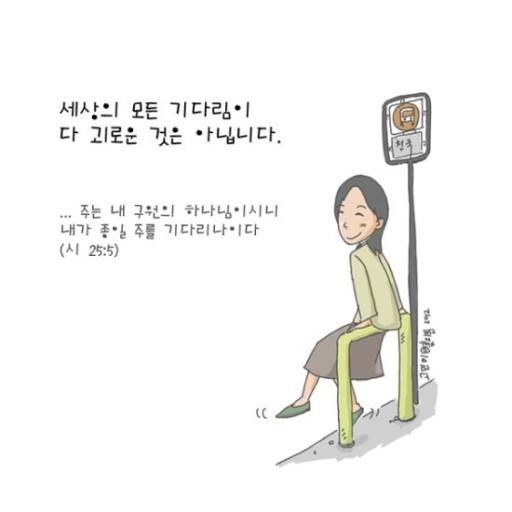 세상의 모든 기다림이
다 괴로운 것은 아닙니다.
... 주는 내 구원의 하나님이시니
내가 종일 주를 기다리나이다
(시 25:5)
천국